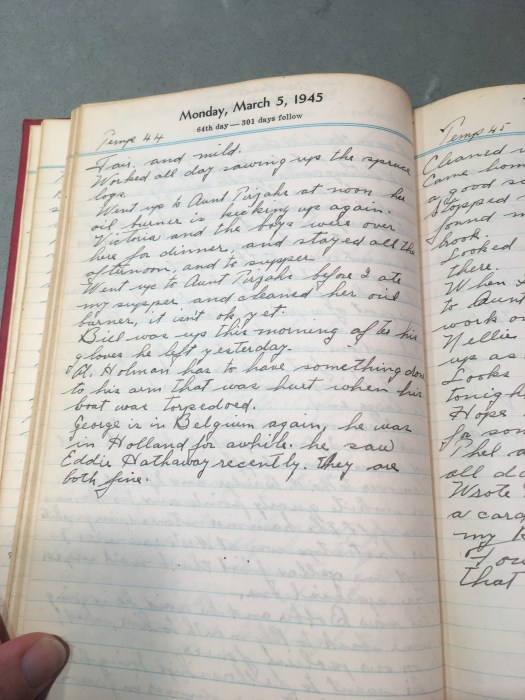 Monday, March 5, 1945
64th day — 301 days follow
Temp 44
Fair. and mild.
Worked all day sawing up the spruce
logs.
Went up to Aunt Pirzahs at noon her
oil burner is kicking up again.
Victoria and the boys were over
here for dinner, and stayed all the
afternoon, and to supper.
Went up to Aunt Pirzahs before I ate
my supper and cleaned her oil
burner, it isnt ok yet.
Bill was up this morning after his
gloves he left yesterday.
Al. Holman has to have something done
to his arm that was hurt when his
boat was torpedoed.
George is in Belgium again, he was
in Holland for awhile. he saw
Eddie Hathaway recently. they are
both fine.
Temp 45
Cleaned
Came hom
a good
stopped
found
book.
Looked
there.
When
to Aunt
work o
Nellie
up as
Looks
tonigh
Hope
for som
all da
Wrote
a card
my
that